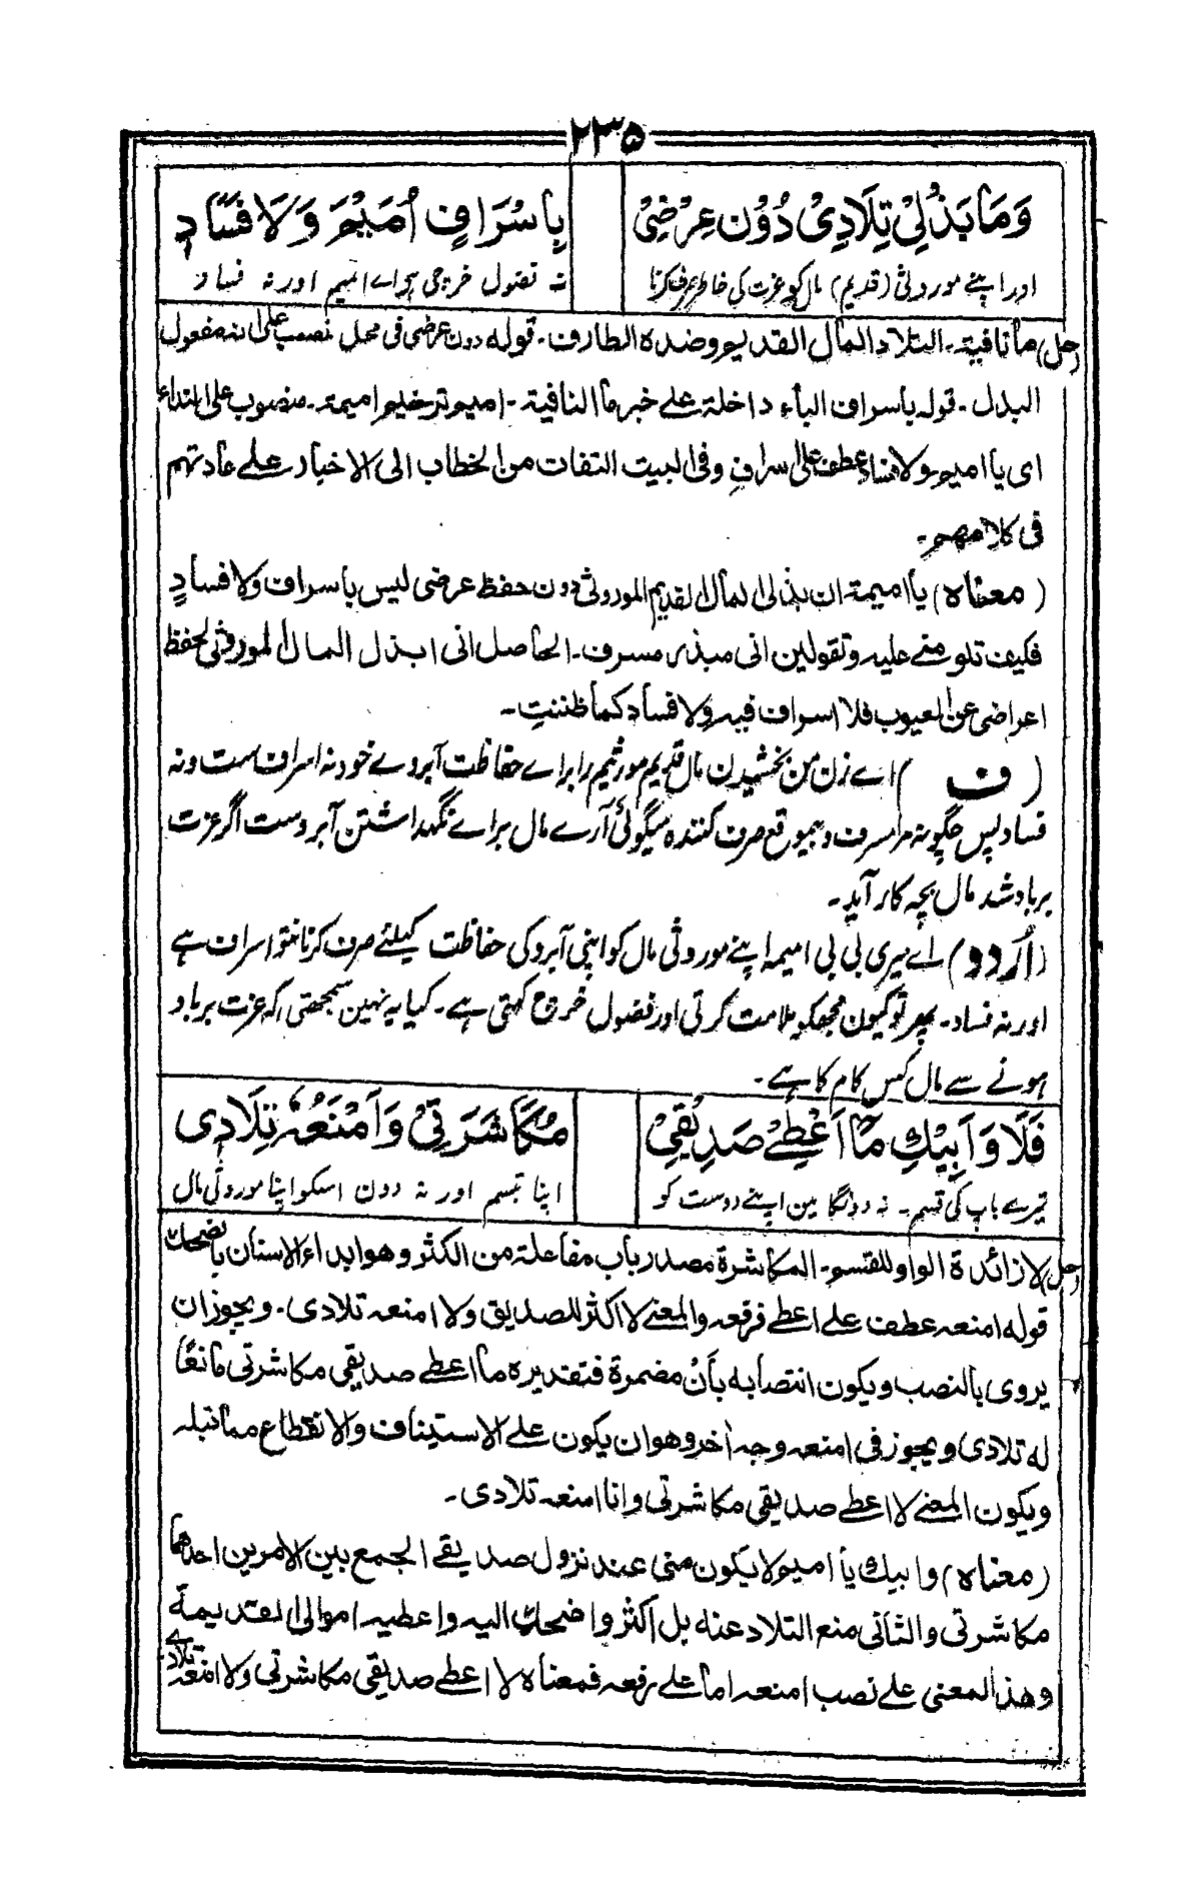 ۲۳۵
وَمَا بَذْلِیْ تِلَادِیْ دُوْنَ عِرْضِیْ بِاِسْرَافٍ اُمَیْمَ وَلَا فَسَادٖ
اور اپنے موروثی (قدیم) مال کو عزت کی خاطر صرف کرنا نہ فضول خرچی ہے اے امیم اور نہ فساد
(حل) ما نافیۃ۔ التلاد المال القدیم وضدہ الطارف۔ قولہ دون عرضی فی محل نصب علی انہ مفعول
البذل۔ قولہ باسراف الباء داخلۃ علے خبر ما النافیۃ۔ امیم ترخیم امیمۃ۔ منصوب علی النداء
ای یا امیم ولا فساد عطف علی اسرافٍ وفی البیت التفات من الخطاب الی الاخبار علے عادتہم
فی کلامہم۔
(معناہ) یا امیمۃ ان بذلی المال القدیم الموروثی دون حفظ عرضی لیس باسراف ولا فسادٍ
فکیف تلومنے علیہ وتقولین انی مبذر مسرف۔ الحاصل انی ابذل المال الموروثی لحفظ
اعراضی عن العیوب فلا اسراف فیہ ولا فساد کما ظننتِ۔
(ف) اے زن من بخشیدن مال قدیم موروثیم را براے حفاظت آبروے خود نہ اسراف ست و نہ
فساد پس چگونہ مرا مسرف و بیموقع صرف کنندہ میگوئی آرے مال براے نگہداشتن آبروست اگر عزت
برباد شد مال بچہ کار آید۔
(اُردو) اے میری بی بی امیمہ اپنے موروثی مال کو اپنی آبرو کی حفاظت کیلئے صرف کرنا نتو اسراف ہے
اور نہ فساد۔ پھر تو کیون مجھکو ملامت کرتی اور فضول خرچ کہتی ہے۔ کیا یہ نہین سمجھتی کہ عزت برباد
ہونے سے مال کس کام کا ہے۔
فَلَا وَاَبِیْكِ مَا اُعْطِیْ صَدِیْقِیْ مُکَاشَرَتِیْ وَاَمْنَعُہٗ تِلَادِی
تیرے باپ کی قسم۔ نہ دونگا مین اپنے دوست کو اپنا تبسم اور نہ دون اسکو اپنا موروثی مال
(حل) لا زائدۃ الواو للقسم۔ المکاشرۃ مصدر باب مفاعلۃ من الکشر وھو ابداء الاسنان بالضحك
قولہ امنعہ عطف علے اعطے فرفعہ والمعنے لا اکشر للصدیق ولا امنعہ تلادی۔ ویجوز ان
یروی بالنصب ویکون انتصابہ بأن مضمرۃ فتقدیرہ ما اعطے صدیقی مکاشرتی مانعًا
لہ تلادی ویجوز فی امنعہ وجہ اٰخر وھو ان یکون علے الاستیناف والانقطاع مما قبلہ
ویکون المعنے لا اعطے صدیقی مکاشرتی وانا امنعہ تلادی۔
(معناہ) وابیك یا امیم لا یکون منی عند نزول صدیقے الجمع بین الامرین احدھما
مکاشرتی والثانی منع التلاد عنہ بل اکشر واضحك الیہ واعطیہ اموالی القدیمۃ
وھذا المعنی علے نصب امنعہ اما علے رفعہ فمعناہ لا اعطے صدیقی مکاشرتی ولا امنعہ تلادے